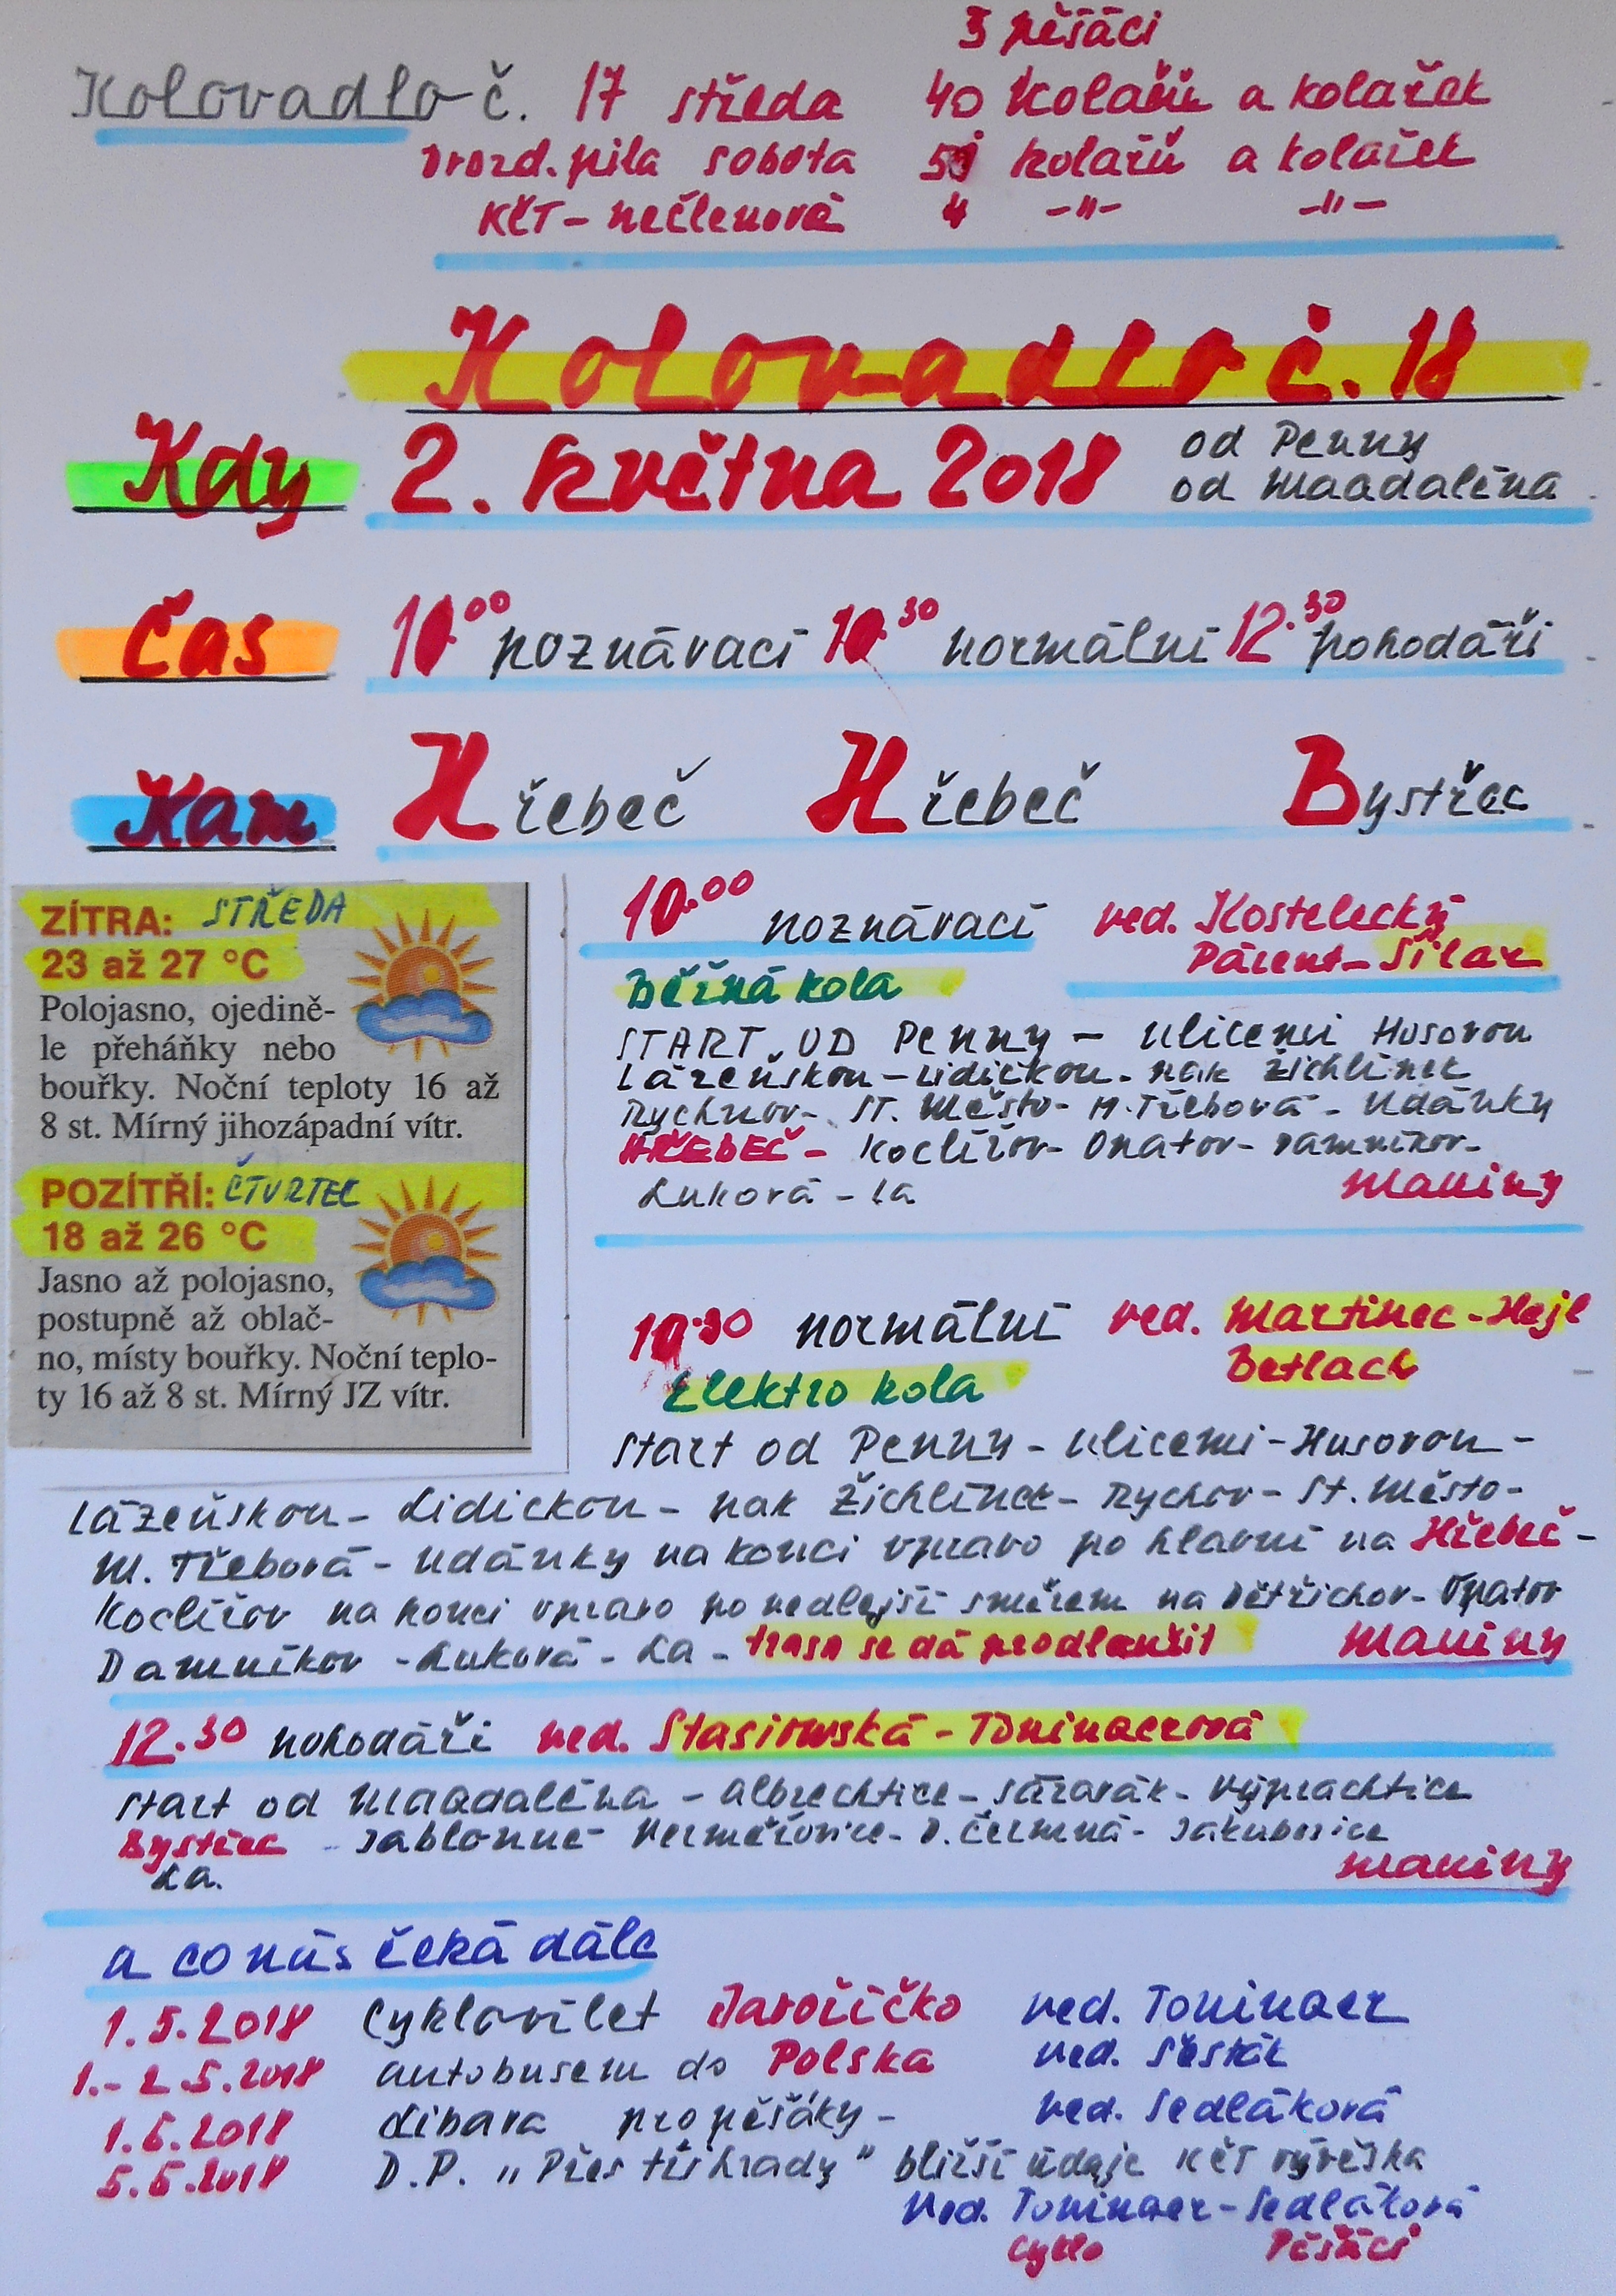 3 pěšáci
Kolovadlo č. 17 středa 40 kolařů a kolařek
Drozd. pila sobota kolařů a kolařek
KČT - nečlenové 4 -"- -"-
Kolovadlo č. 18
Kdy 2. května 2018 od Penny
od Maadaléna
Čas 10.00 poznávací 10.30 normální 12.30 pohodáři
Kam Hřebeč Hřebeč Bystřec
ZÍTRA: STŘEDA
23 až 27 °C
Polojasno, ojedině-
le přeháňky nebo
bouřky. Noční teploty 16 až
8 st. Mírný jihozápadní vítr.
POZÍTŘÍ: ČTVRTEC
18 až 26 °C
Jasno až polojasno,
postupně až oblač-
no, místy bouřky. Noční teplo-
ty 16 až 8 st. Mírný JZ vítr.
10.00 poznávací ved. Kostelecký
Párent - Šilar
Běžná kola
START OD Penny - ulicemi Husovou
Lázeňskou - Lidickou - pak Žichlínek
Rychnov - ST. Město - M. Třebová - Udánky
HŘEBEČ - Koclířov - Opatov - Damníkov -
Luková - La Maniny
10.30 normální ved. Martinec - Hejl
Betlach
Elektro kola
start od Penny - ulicemi - Husovou -
Lázeňskou - Lidickou - pak Žichlínek - Rychov - St. Město -
M. Třebová - Udánky na konci vpravo po hlavní na Hřebeč -
Koclířov na konci vpravo po vedlejší směrem na Dětřichov - Opatov
Damníkov - Luková - La - trasa se dá prodloužit Maniny
12.30 pohodáři ved. Stasiowská - Toninaerová
start od Maadaléna - Albrechtice - Sázavák - Výprachtice
Bystřec - Jablonné - Heřmořovice - D. Čermná - Jakubovice
La. Maniny
a co nás čeká dále
1.5.2018 Cyklovýlet Javoříčko ved. Toninaer
1.- 2.5.2018 autobusem do Polska ved. Šesták
1.6.2018 Libava pro pěšáky - ved. Sedláková
5.5.2018 D.P. „Přes tři hrady" bližší údaje KČT vývěska
Ved. Toninaer - Sedláková
Cyklo Pěšáci